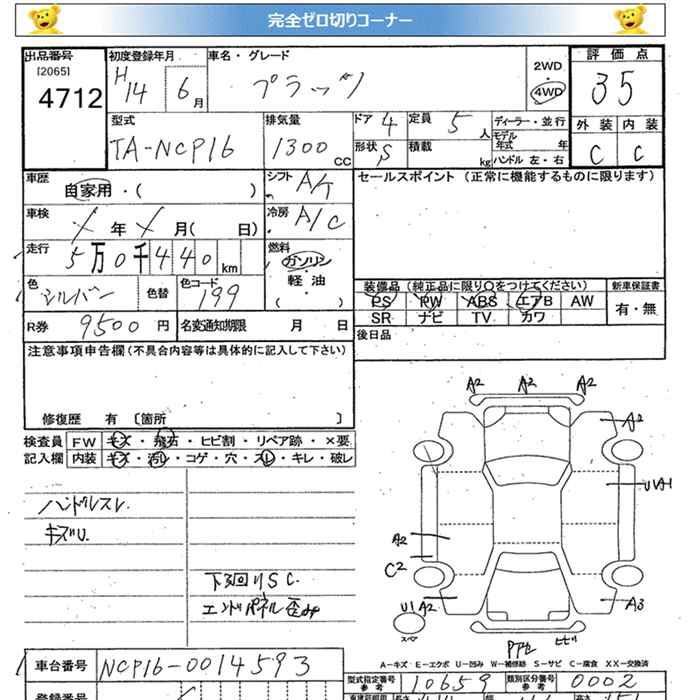 完全ゼロ切りコーナー
出品番号 初度登録年月 車名・グレード 2WD 評価点
[2065] H14 6月 プラッツ ・ 35
4712 4WD
型式 排気量 ドア 4 定員 5人 ディーラー・並行 外装 内装
TA-NCP16 1300cc 形状 S 積載 kg モデル年式 年 C C
ハンドル 左・右
車歴 シフト A/T セールスポイント (正常に機能するものに限ります)
自家用・( )
車検 年 月( 日) 冷房 A/C
走行 5万0千440km 燃料 ガソリン
軽油
( )
色 シルバー 色替 色コード 199 装備品(純正品に限り○をつけてください) 新車保証書
PS PW ABS エアB AW 有・無
R券 9500円 名変通知期限 月 日 SR ナビ TV カワ
後日品
注意事項申告欄(不具合内容等は具体的に記入して下さい)
修復歴 有 〔箇所 〕
検査員 FW キズ・飛石・ヒビ割・リペア跡・×要
記入欄 内装 キズ・汚レ・コゲ・穴・スレ・キレ・破レ
A2 A2 A2
A2
ハンドルスレ UA1
キズU.
A2
C2
下廻りSC. U1 A2 A3
エンドパネル歪み スペア
ヒビ
A-キズ E-エクボ U-凹み W-補修跡 S-サビ C-腐食 XX-交換済
車台番号 NCP16-0014593 型式指定番号 参考 10659 類別区分番号 参考 0002
登録番号